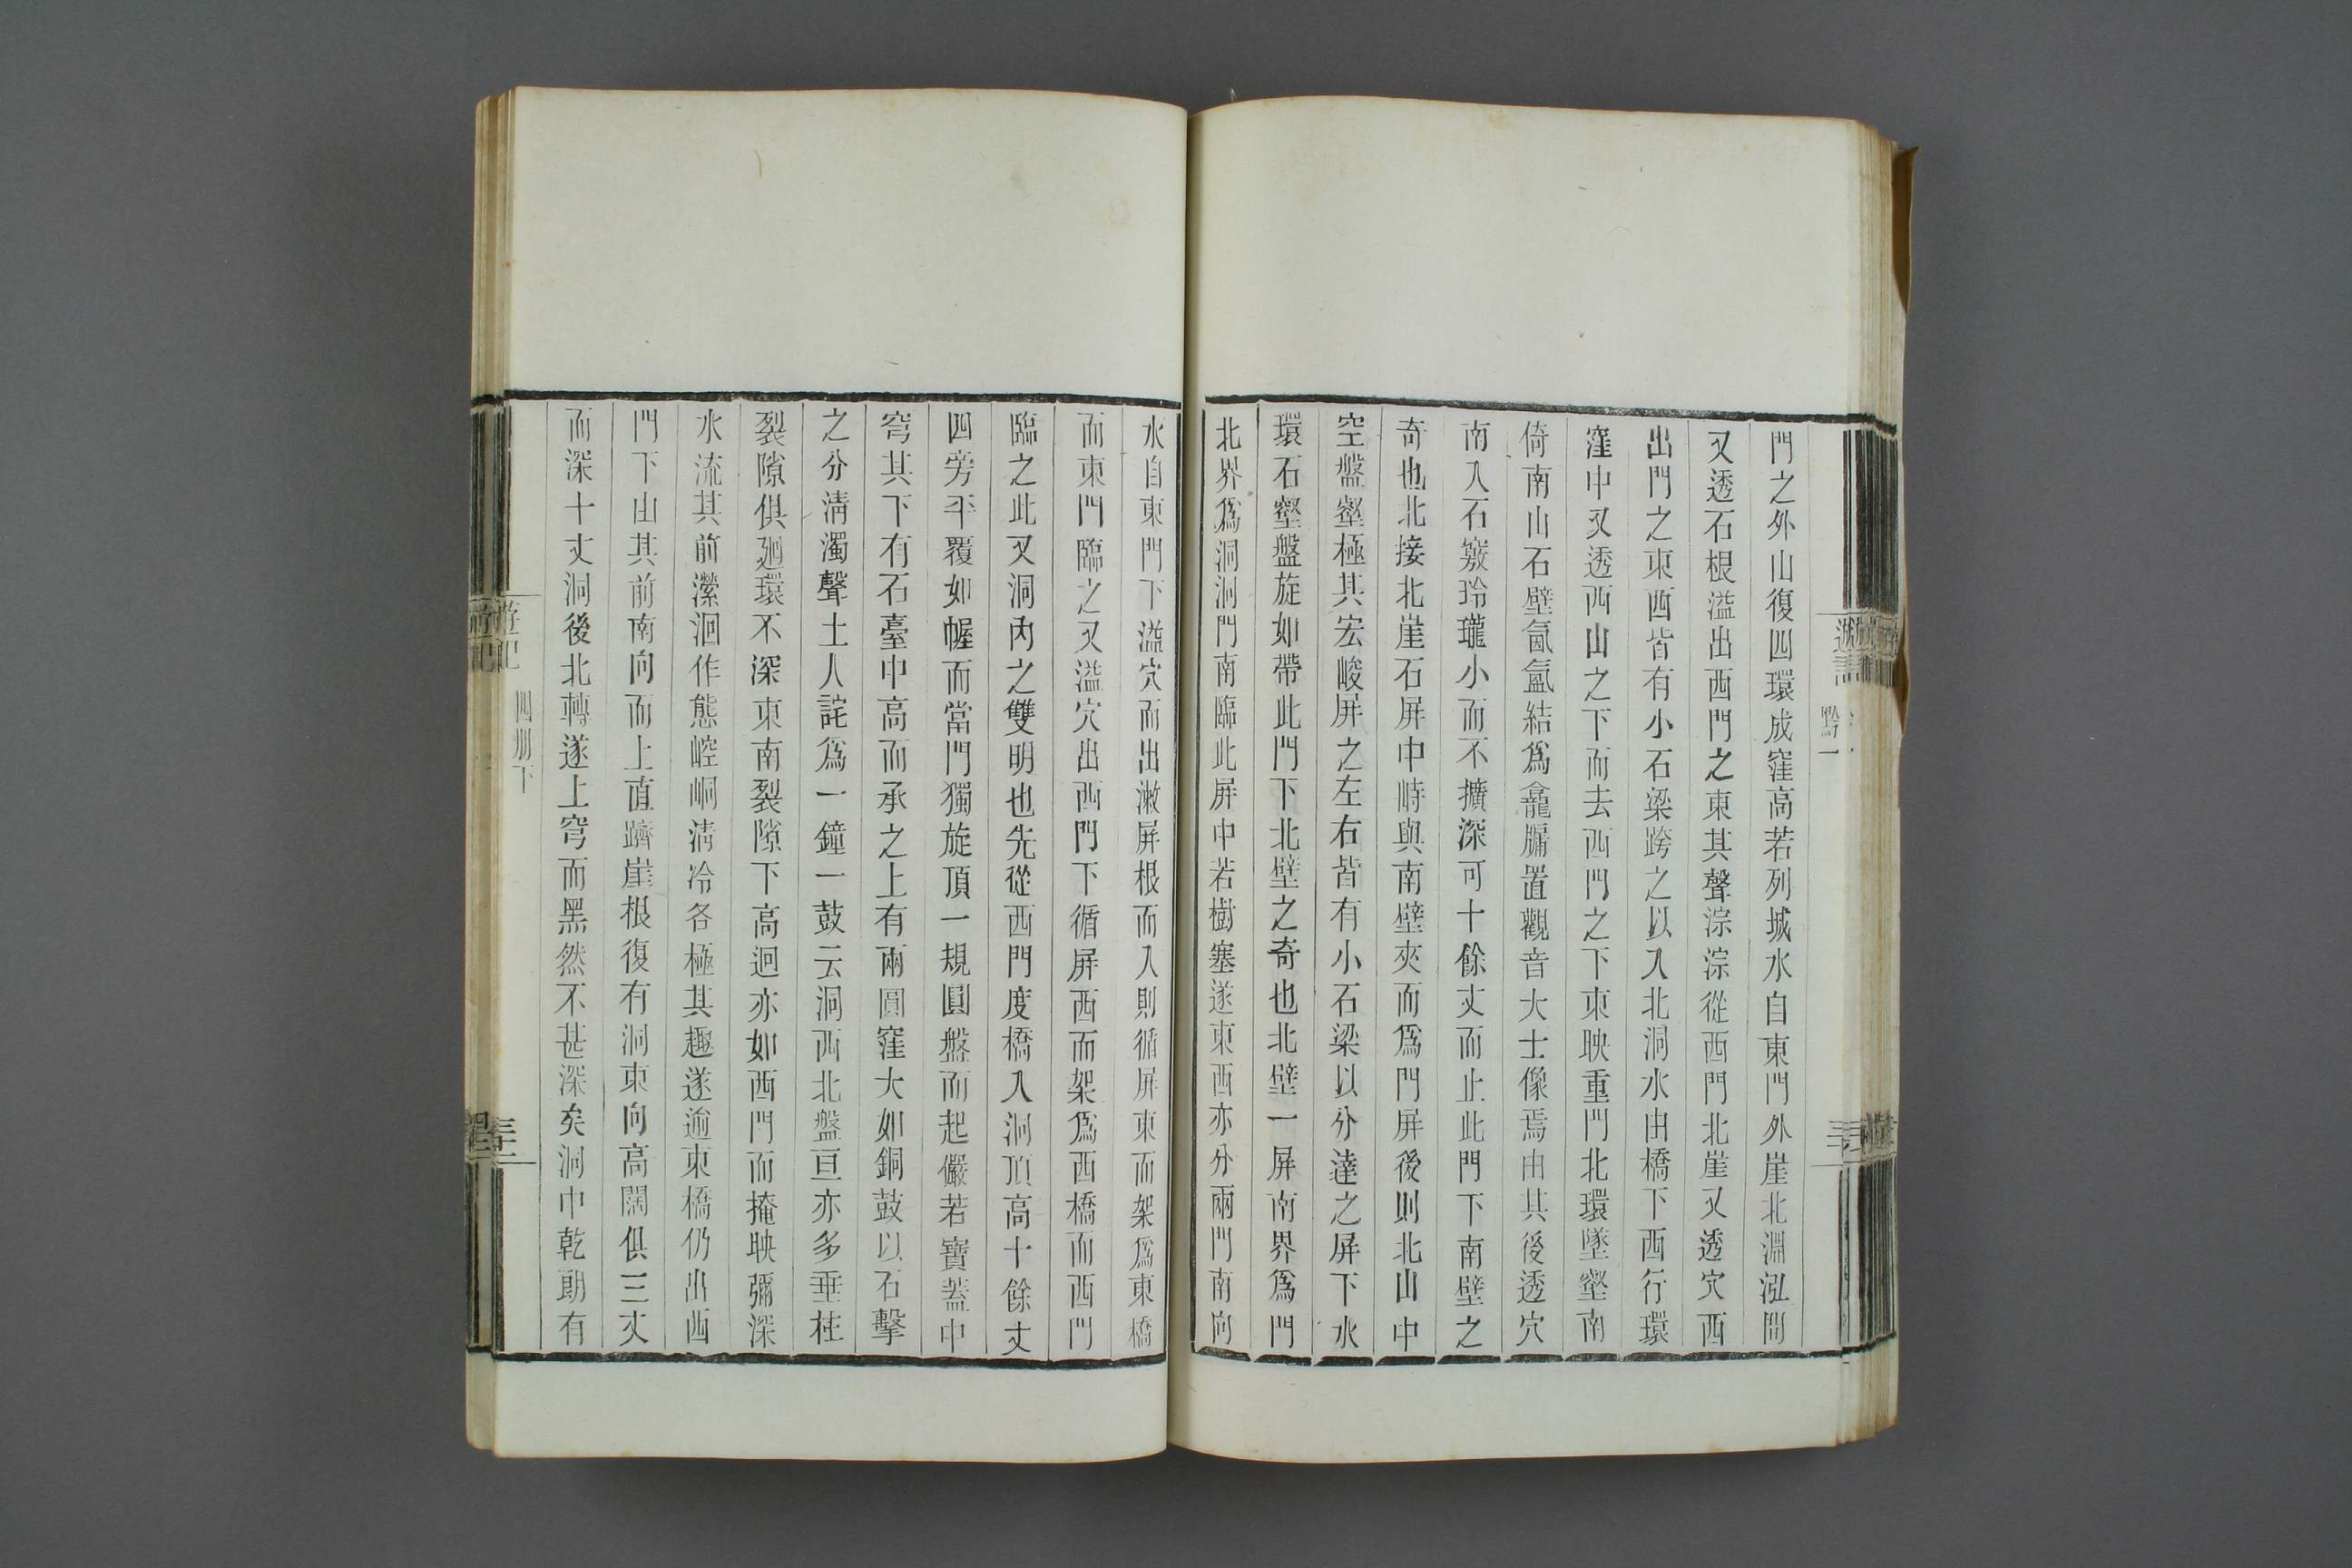 門之外山復四環成窪高若列城水自東門外崖北淵泓間
又透石根溢出西門之東其聲淙淙從西門北崖又透穴西
出門之東西皆有小石梁跨之以入北洞水由橋下西行環
窪中又透西山之下而去西門之下東映重門北環墜壑南
倚南山石壁氤氳結爲龕牖置觀音大士像焉由其後透穴
南入石竅玲瓏小而不擴深可十餘丈而止此門下南壁之
奇也北接北崖石屏中峙與南壁夾而爲門屏後則北山中
空盤壑極其宏峻屏之左右皆有小石梁以分達之屏下水
環石壑盤旋如帶此門下北壁之奇也北壁一屏南界爲門
北界爲洞洞門南臨此屏中若樹塞遂東西亦分兩門南向
水自東門下溢穴而出漱屏根而入則循屏東而架爲東橋
而東門臨之又溢穴出西門下循屏西而架爲西橋而西門
臨之此又洞內之雙明也先從西門度橋入洞頂高十餘丈
四旁平覆如幄而當門獨旋頂一規圓盤而起儼若寶蓋中
穹其下有石臺中高而承之上有兩圓窪大如銅鼓以石擊
之分清濁聲土人詫爲一鐘一鼓云洞西北盤亘亦多垂柱
裂隙俱廻環不深東南裂隙下高迥亦如西門而掩映彌深
水流其前瀠洄作態崆峒清冷各極其趣遂逾東橋仍出西
門下由其前南向而上直躋崖根復有洞東向高闊俱三丈
而深十丈洞後北轉遂上穹而黑然不甚深矣洞中乾朗有
遊記
四册下
黔一